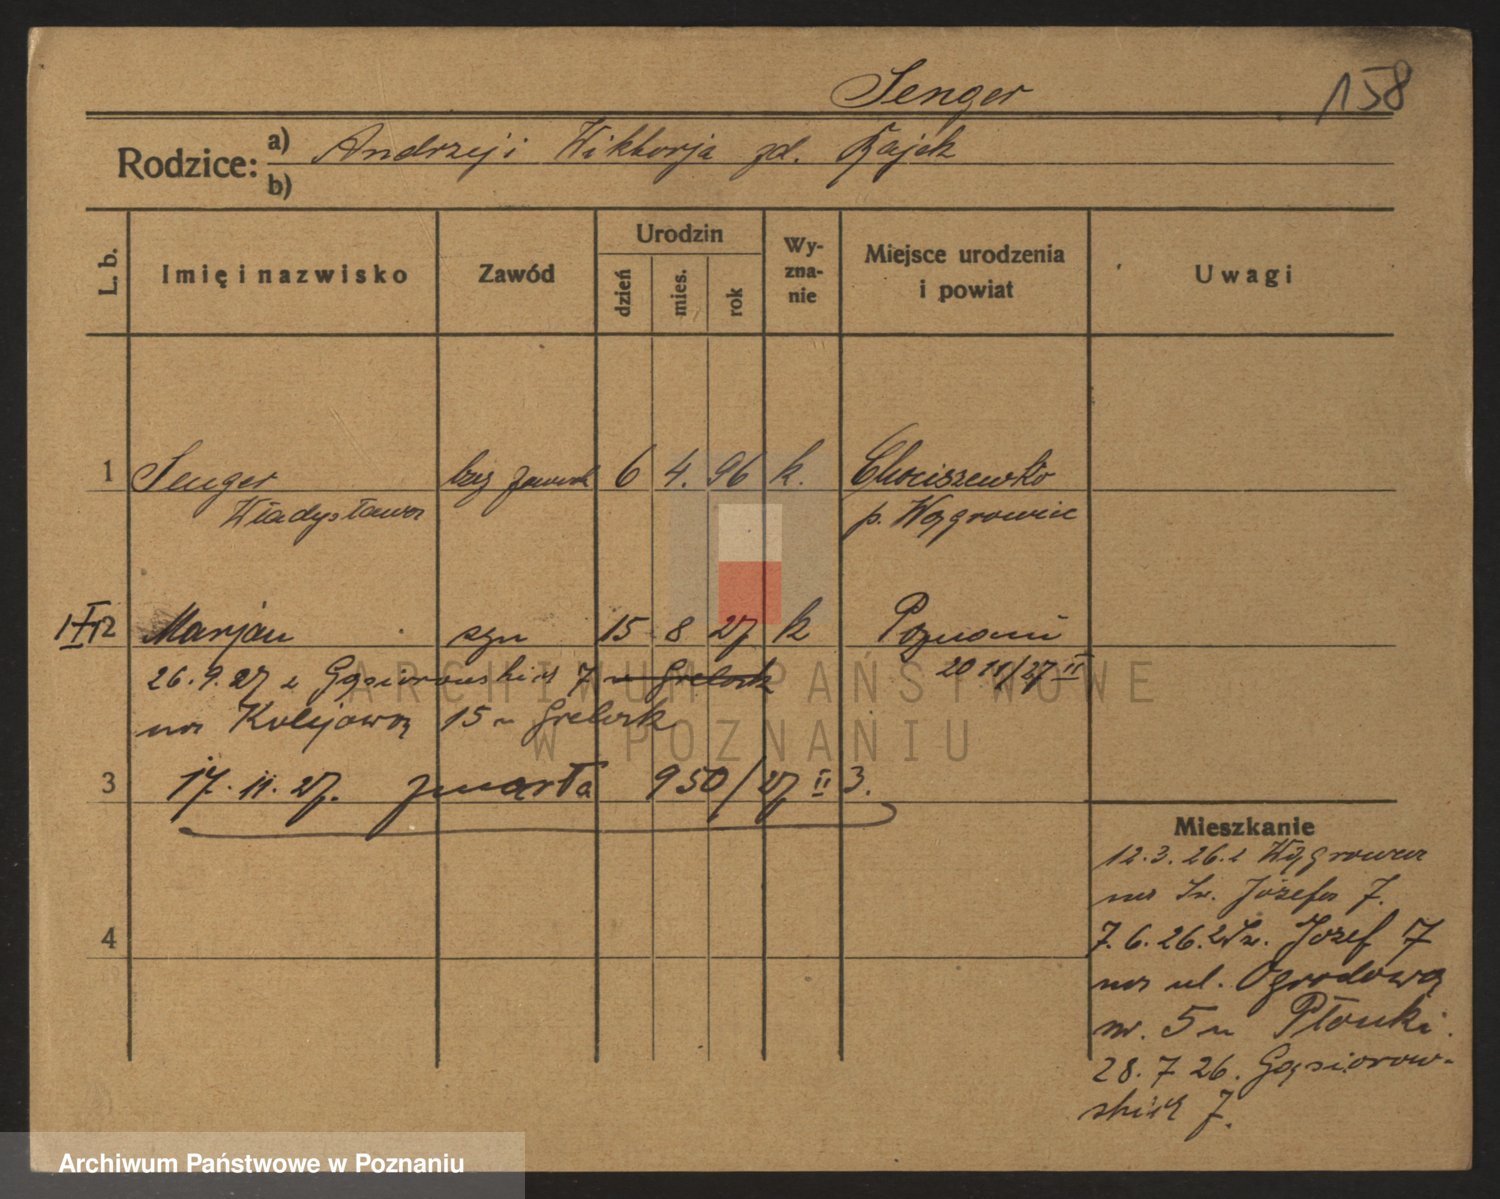 Senger 158
Rodzice: a) Andrzej i Wiktorja zd. Zajek
b)
L. b. Imię i nazwisko Zawód Urodzin dzień mies. rok Wy-zna-nie Miejsce urodzenia i powiat Uwagi
1 Senger bez zawod 6 4. 96 k. Chociszewko
Władysława p. Wągrowiec
2 Marjan syn 15 8 27 k Poznań
26.9.27 z Gąsiorowskich 7 u Grelock 20 11/27 II
na Kolejową 15 u Grelock
3 17. 11. 27. zmarła 950/27 II 3.
Mieszkanie
12.3.26. z Wągrowca
na Św. Józefa 7.
4 7.6.26. z Św. Józef 7
na ul. Ogrodową
nr. 5 u Płonki.
28.7 26. Gąsiorow-
skich 7.
ARCHIWUM PAŃSTWOWE
W POZNANIU
Archiwum Państwowe w Poznaniu